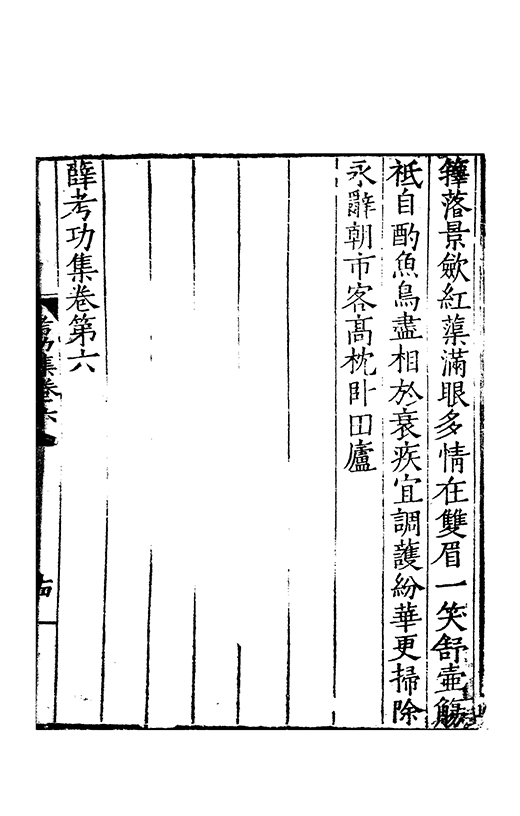 籜落景歛紅蕖滿眼多情在雙眉一笑舒壷觴
祗自酌魚鳥盡相於衰疾宜調護紛華更掃除
永辭朝市客髙枕卧田廬
薛考功集卷第六